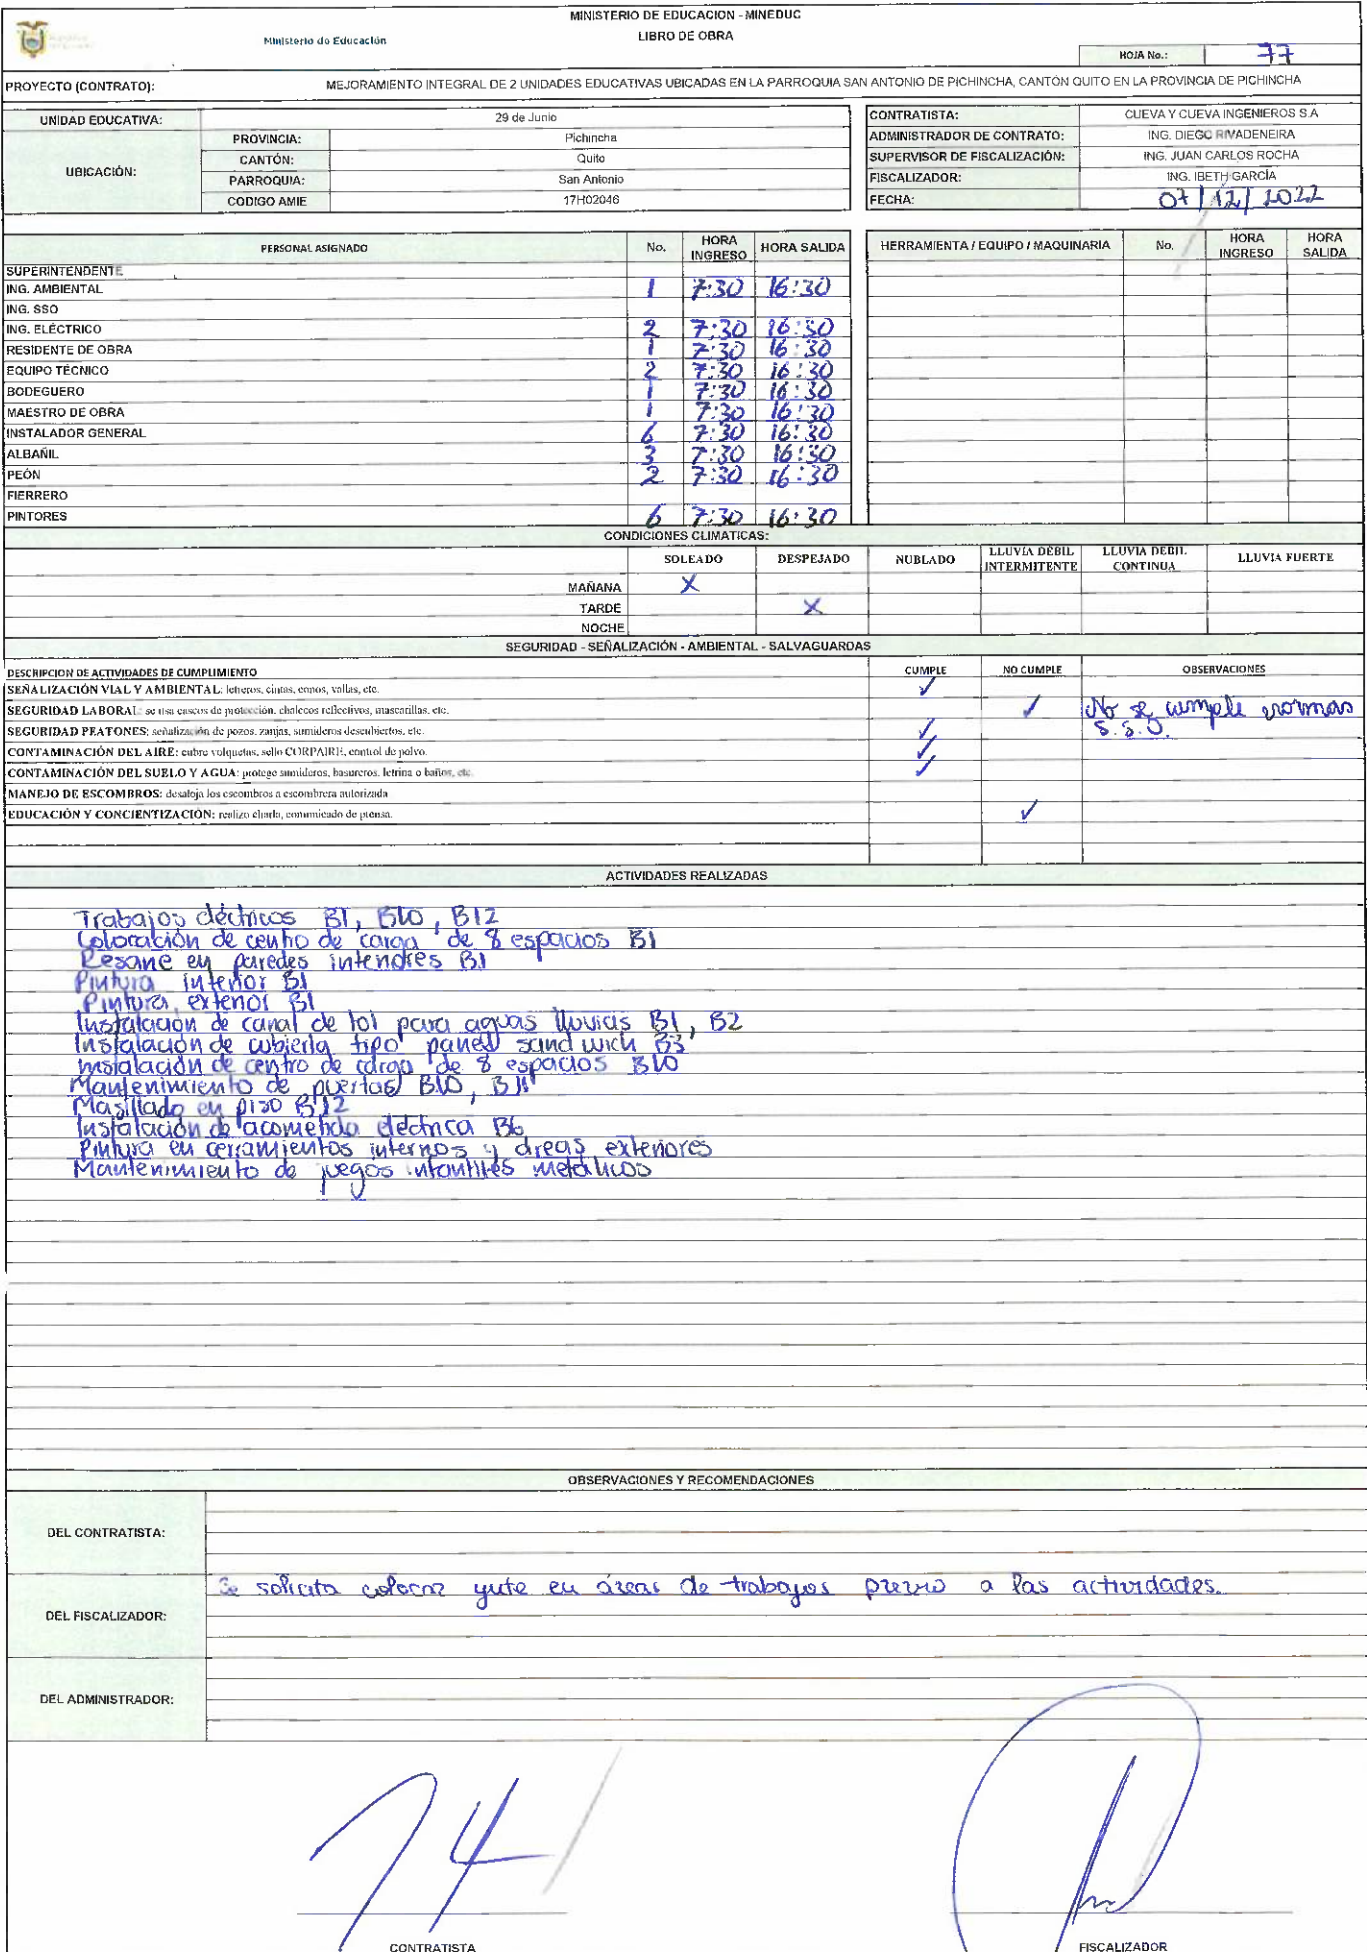 MINISTERIO DE EDUCACION - MINEDUC
Ministerio de Educación
LIBRO DE OBRA
HOJA No.: 77
PROYECTO (CONTRATO): MEJORAMIENTO INTEGRAL DE 2 UNIDADES EDUCATIVAS UBICADAS EN LA PARROQUIA SAN ANTONIO DE PICHINCHA, CANTON QUITO EN LA PROVINCIA DE PICHINCHA
UNIDAD EDUCATIVA: 29 de Junio
UBICACIÓN:
PROVINCIA: Pichincha
CANTÓN: Quito
PARROQUIA: San Antonio
CODIGO AMIE 17H02046
CONTRATISTA: CUEVA Y CUEVA INGENIEROS S.A
ADMINISTRADOR DE CONTRATO: ING. DIEGO RIVADENEIRA
SUPERVISOR DE FISCALIZACIÓN: ING. JUAN CARLOS ROCHA
FISCALIZADOR: ING. IBETH GARCÍA
FECHA: 07/12/2022
PERSONAL ASIGNADO No. HORA INGRESO HORA SALIDA
SUPERINTENDENTE
ING. AMBIENTAL 1 7:30 16:30
ING. SSO
ING. ELÉCTRICO 2 7:30 16:30
RESIDENTE DE OBRA 1 7:30 16:30
EQUIPO TÉCNICO 2 7:30 16:30
BODEGUERO 1 7:30 16:30
MAESTRO DE OBRA 1 7:30 16:30
INSTALADOR GENERAL 6 7:30 16:30
ALBAÑIL 3 7:30 16:30
PEÓN 2 7:30 16:30
FIERRERO
PINTORES 6 7:30 16:30
HERRAMIENTA / EQUIPO / MAQUINARIA No. HORA INGRESO HORA SALIDA
CONDICIONES CLIMATICAS:
SOLEADO DESPEJADO NUBLADO LLUVIA DÉBIL INTERMITENTE LLUVIA DEBIL CONTINUA LLUVIA FUERTE
MAÑANA X
TARDE X
NOCHE
SEGURIDAD - SEÑALIZACIÓN - AMBIENTAL - SALVAGUARDAS
DESCRIPCION DE ACTIVIDADES DE CUMPLIMIENTO CUMPLE NO CUMPLE OBSERVACIONES
SEÑALIZACIÓN VIAL Y AMBIENTAL: letreros, cintas, conos, vallas, etc. ✓
SEGURIDAD LABORAL: se usa cascos de protección, chalecos reflectivos, mascarillas, etc. ✓ No se cumple normas S.S.O.
SEGURIDAD PEATONES: señalización de pozos, zanjas, sumideros descubiertos, etc. ✓
CONTAMINACIÓN DEL AIRE: cubre volquetas, sello CORPAIRE, control de polvo. ✓
CONTAMINACIÓN DEL SUELO Y AGUA: protege sumideros, basureros, letrina o baños, etc. ✓
MANEJO DE ESCOMBROS: desaloja los escombros a escombrera autorizada
EDUCACIÓN Y CONCIENTIZACIÓN: realizo charla, comunicado de prensa. ✓
ACTIVIDADES REALIZADAS
Trabajos eléctricos B1, B10, B12
Colocación de centro de carga de 8 espacios B1
Resane en paredes interiores B1
Pintura interior B1
Pintura exterior B1
Instalación de canal de tol para aguas lluvias B1, B2
Instalación de cubierta tipo panel sandwich B3
instalación de centro de carga de 8 espacios B10
Mantenimiento de puertas B10, B11
Masillado en piso B12
Instalación de acometida eléctrica B6
Pintura en cerramientos internos y áreas exteriores
Mantenimiento de juegos infantiles metálicos
OBSERVACIONES Y RECOMENDACIONES
DEL CONTRATISTA:
DEL FISCALIZADOR: Se solicita colocar yute en áreas de trabajos previo a las actividades.
DEL ADMINISTRADOR:
CONTRATISTA FISCALIZADOR